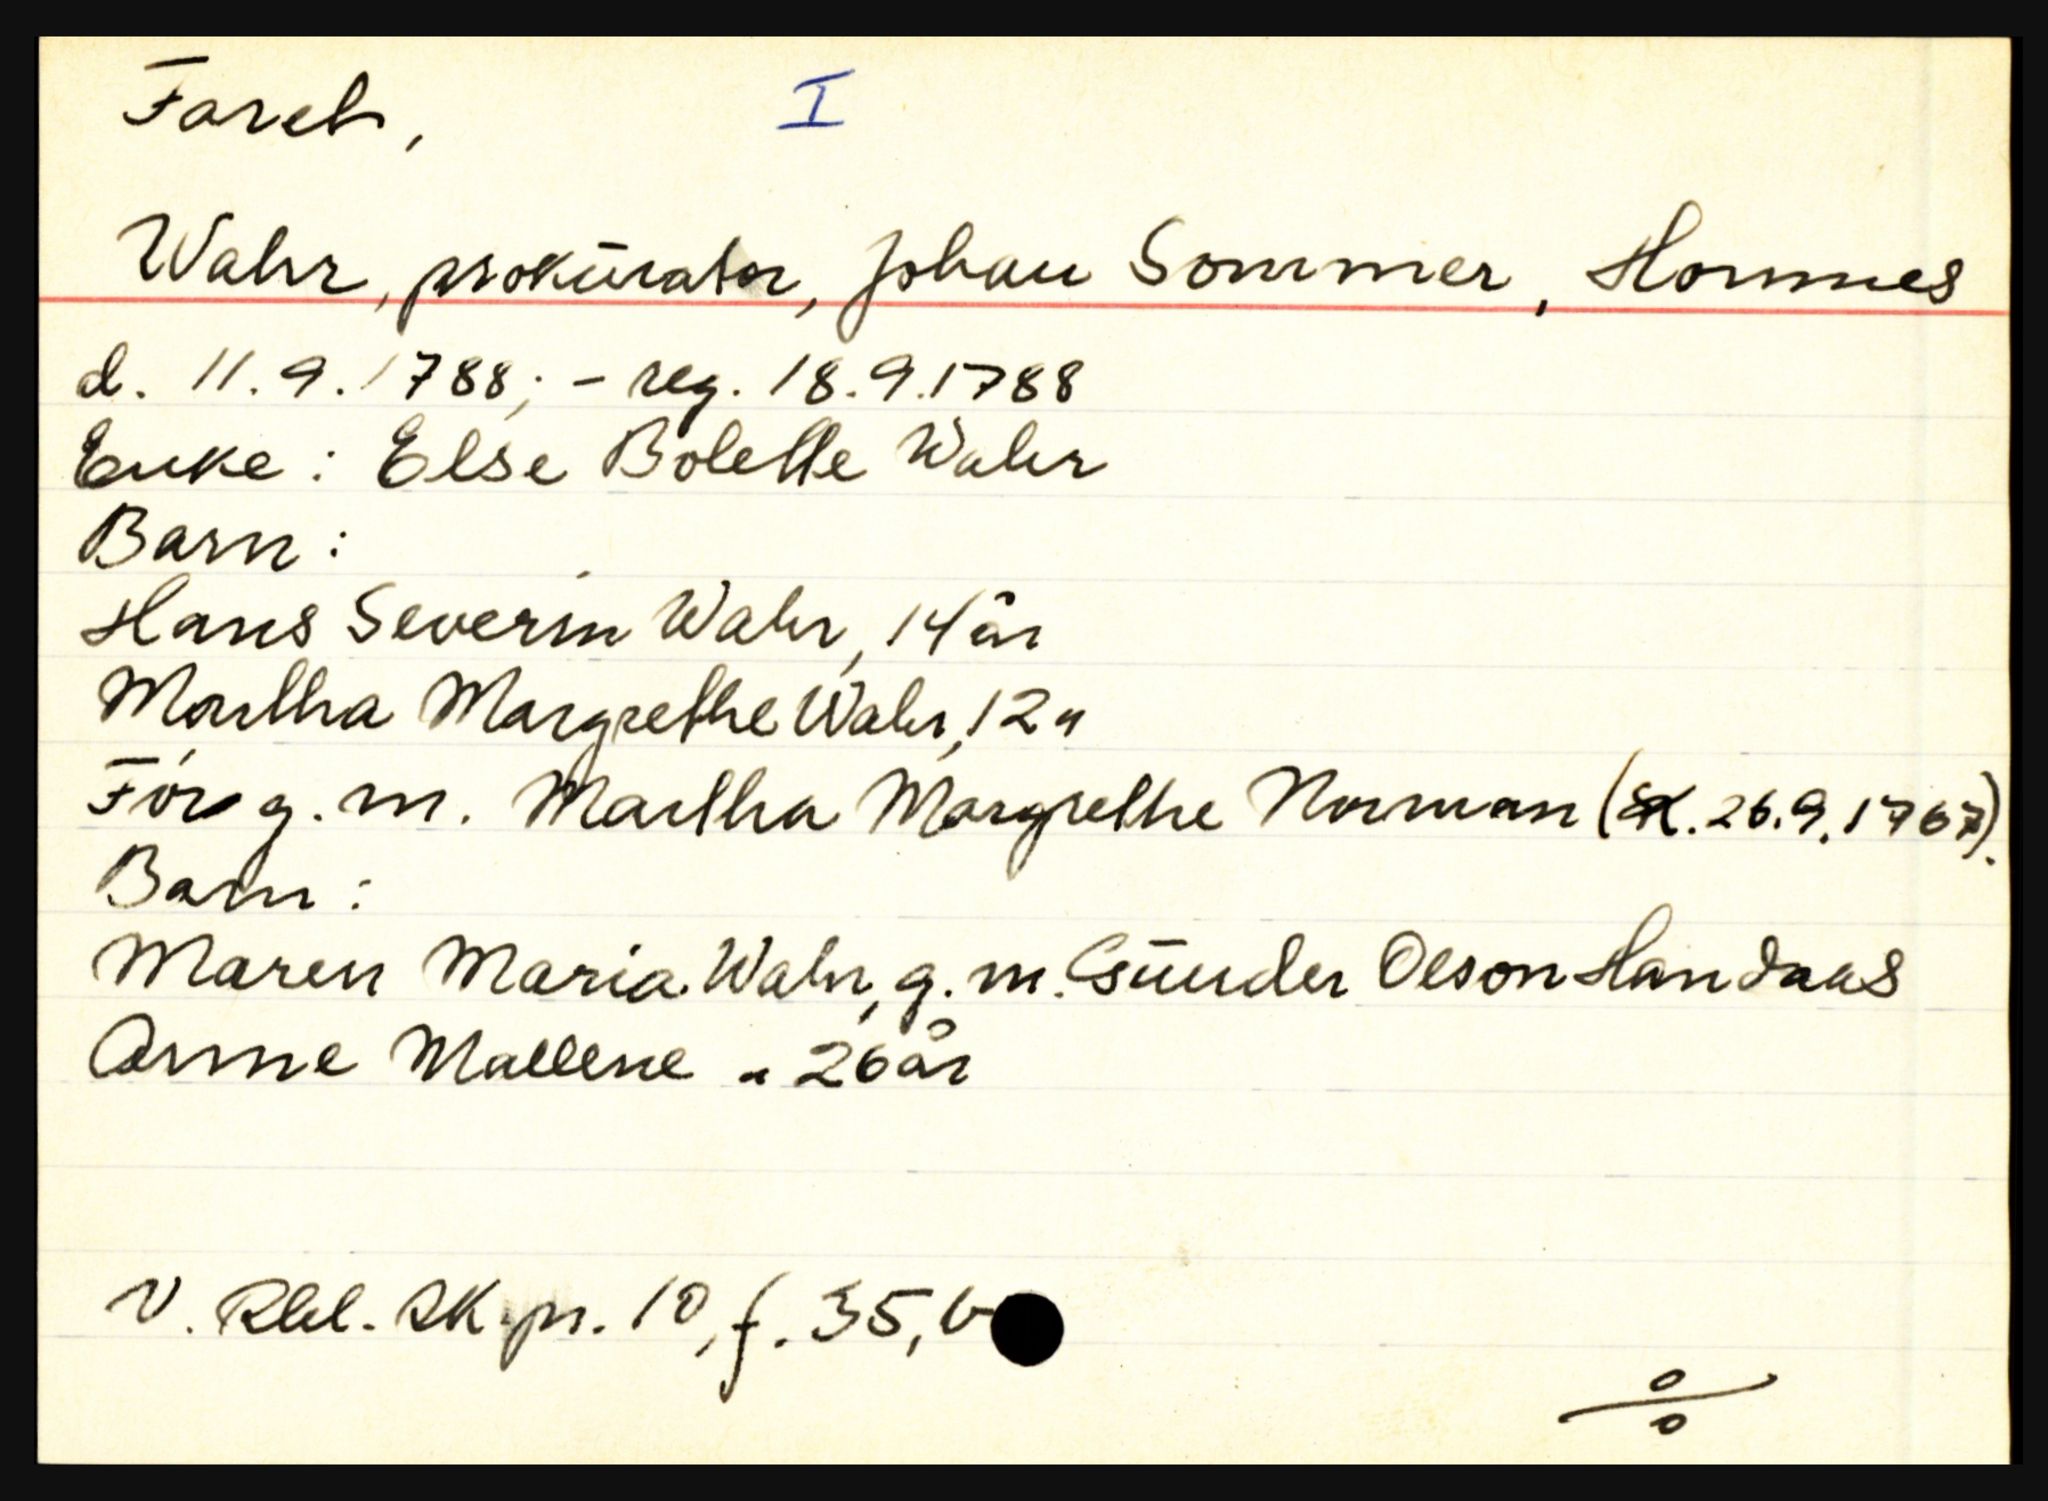 Fareb, I
Wahr, prokurator, Johan Sommer, Hommes
d. 11.9.1788; - reg. 18.9.1788
Enke: Else Bolette Wahr
Barn:
Hans Severin Wahr, 14 år
Martha Margrethe Wahr, 12 "
Før g. m. Martha Margrethe Norman (SK. 26.9.1767).
Barn:
Maren Maria Wahr, g. m. Gunder Olson Handaas
Anne Mallene " 26 år
V. Rbl. SK. pr. 10, f. 35, b